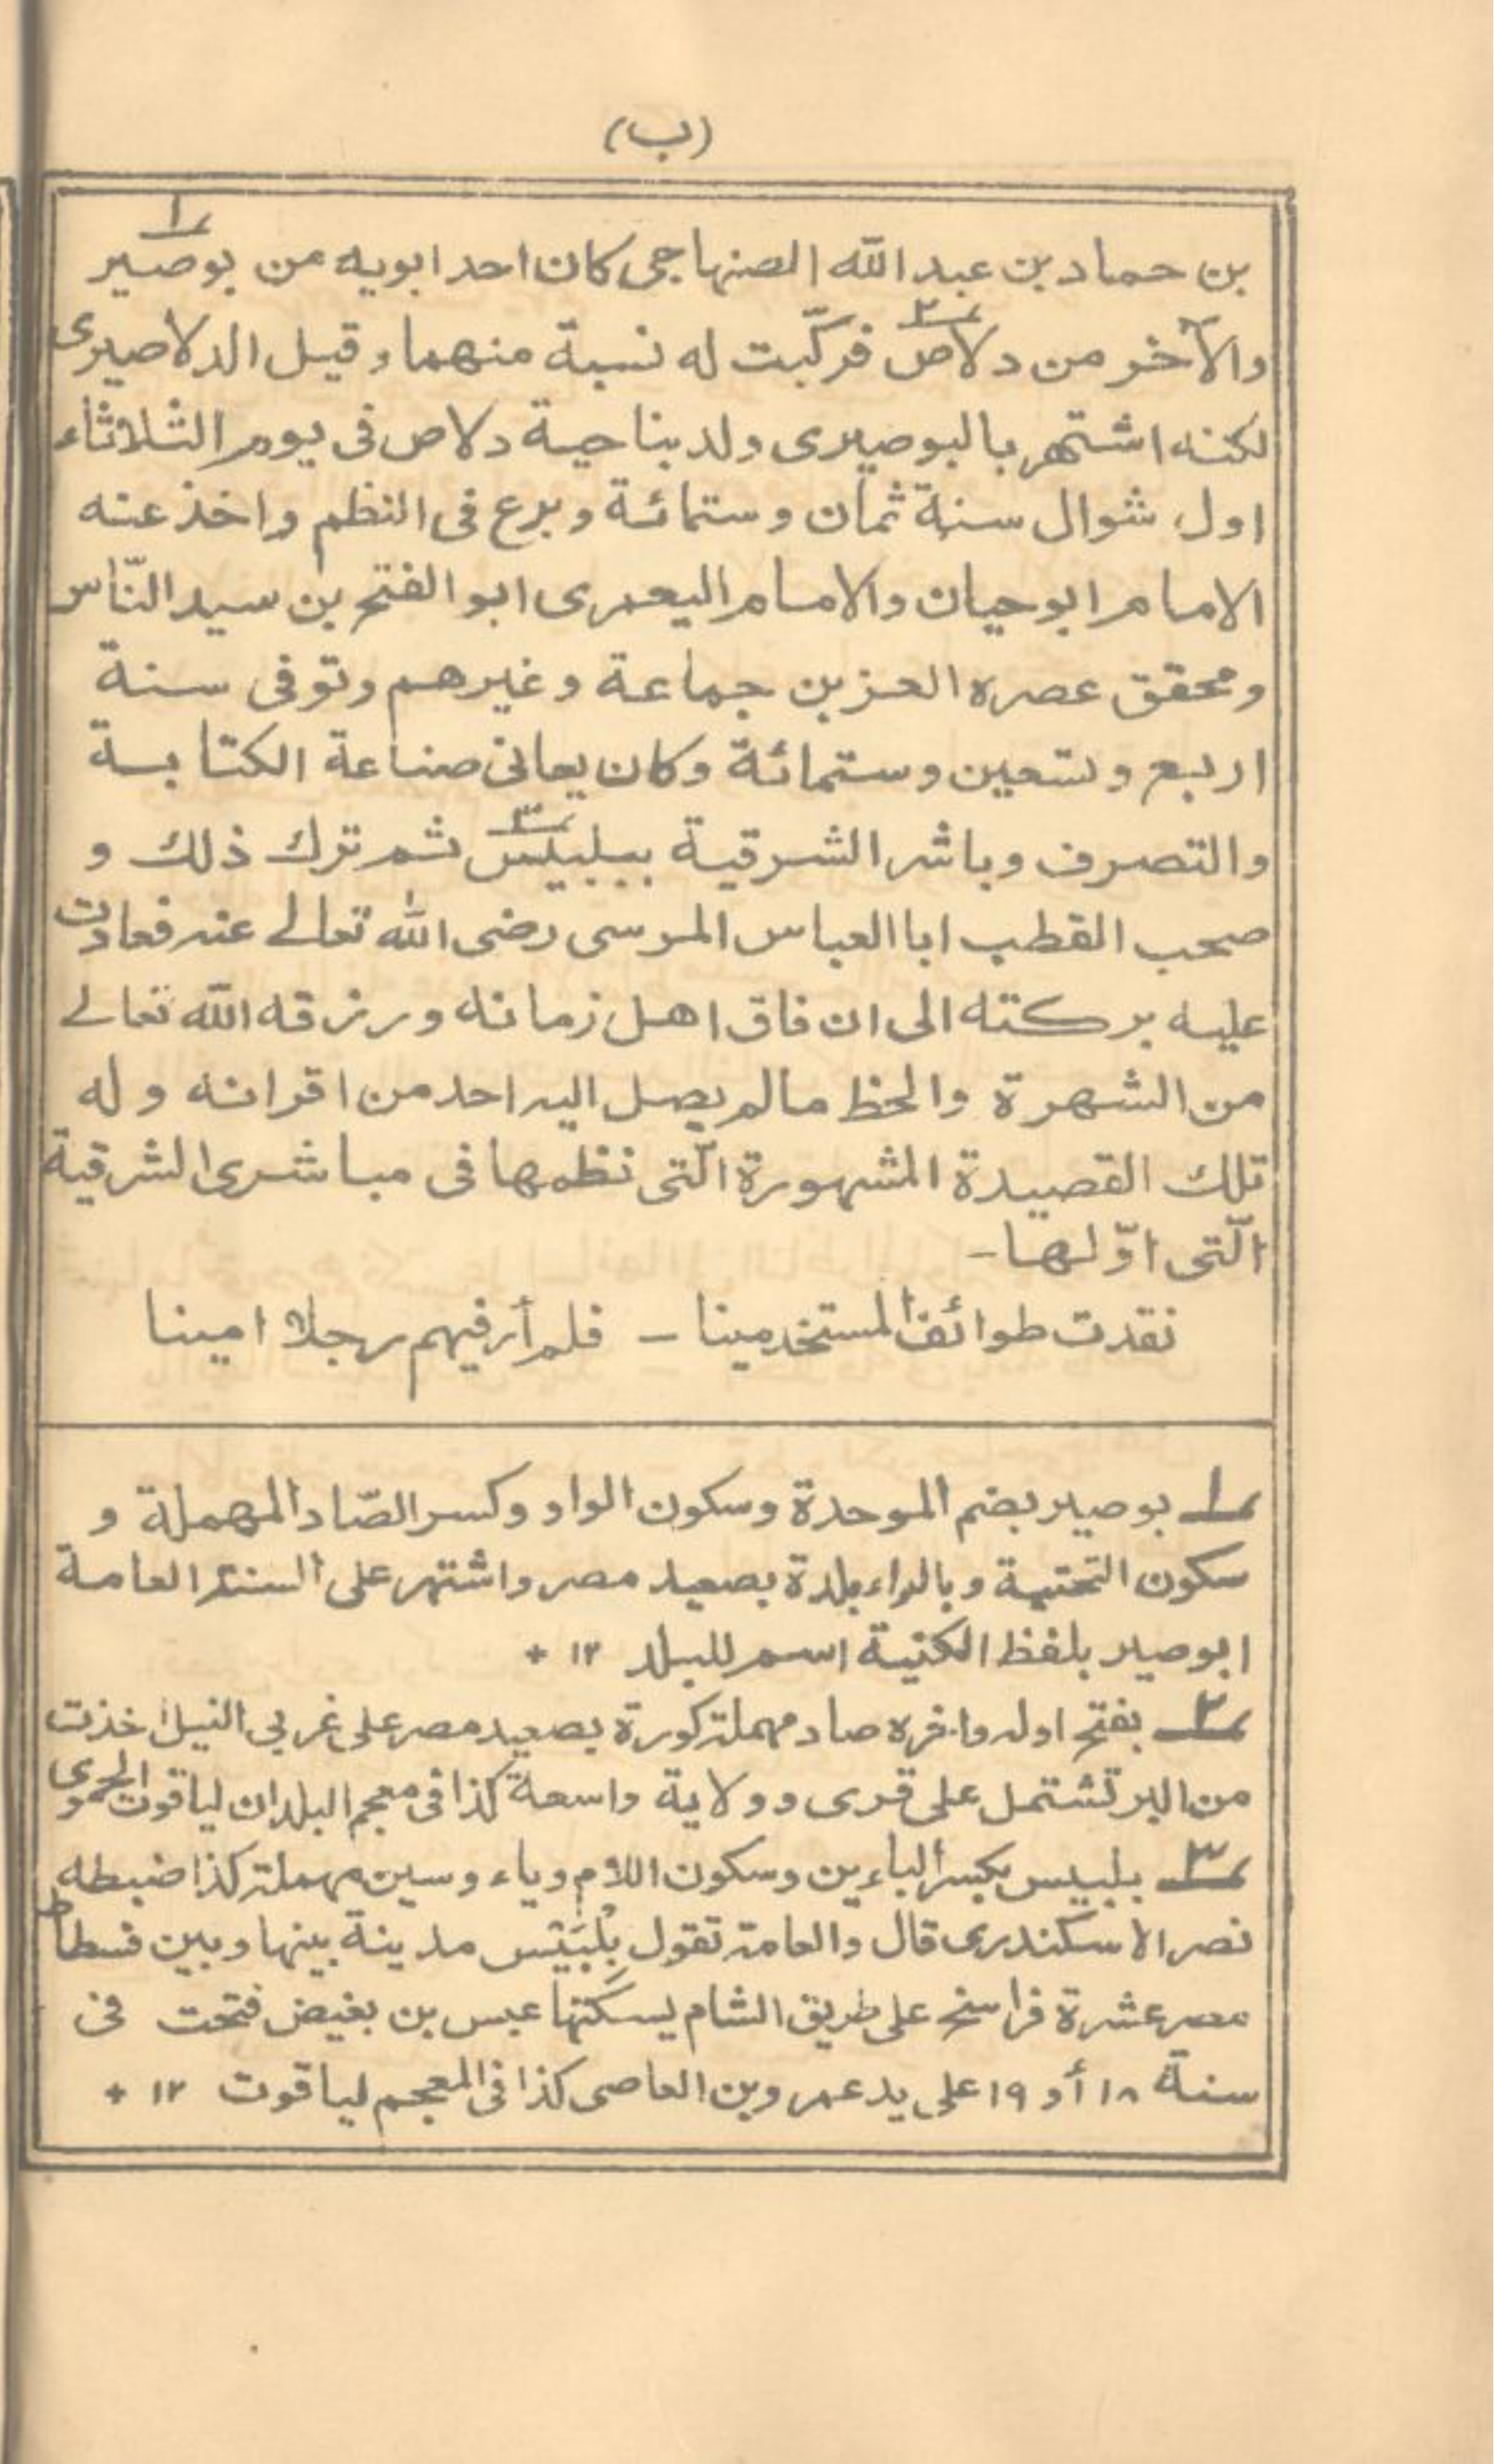 (ب)
بن حماد بن عبد الله الصنهاجى كان احد ابويه من بوصير ١
والآخر من دلاص ٢ فركّبت له نسبة منهما وقيل الدلاصيرى
لكنه اشتهر بالبوصيرى ولد بناحية دلاص فى يوم الثلاثاء
اول شوال سنة ثمان وستمائة وبرع فى النظم واخذ عنه
الامام ابوحيان والامام اليعمرى ابو الفتح بن سيد النّاس
ومحقق عصره العز بن جماعة وغيرهم وتوفى سنة
اربع وتسعين وستمائة وكان يعانى صناعة الكتابة
والتصرف وباشر الشرقية ببلبيس ٣ ثم ترك ذلك و
صحب القطب ابا العباس المرسى رضى الله تعالے عنه فعادت
عليه بركته الى ان فاق اهل زمانه ورزقه الله تعالے
من الشهرة والحظ مالم يصل اليه احد من اقرانه وله
تلك القصيدة المشهورة الّتى نظمها فى مباشرى الشرقية
الّتى اوّلها –
نقدت طوائف المستخدمينا – فلم أر فيهم رجلا امينا
١ بوصير بضم الموحدة وسكون الواو وكسر الصّاد المهملة و
سكون التحتية وبالراء بلدة بصعيد مصر واشتهر على السنة العامة
ابوصير بلفظ الكنية اسم للبلد ١٢ +
٢ بفتح اوله واخره صاد مهملة كورة بصعيد مصر على غربي النيل اخذت
من البر تشتمل على قرى وولاية واسعة كذا فى معجم البلدان لياقوت الحموى
٣ بلبيس بكسر الباءين وسكون اللام وياء وسين مهملة كذا ضبطه
نصر الاسكندرى قال والعامة تقول بِلْبَيْس مدينة بينها وبين فسطاط
مصر عشرة فراسخ على طريق الشام يسكنها عبس بن بغيض فتحت فى
سنة ١٨ أو ١٩ على يد عمرو بن العاصى كذا فى المعجم لياقوت ١٢ +